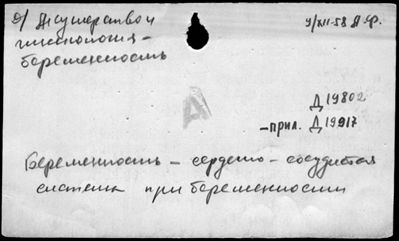 а/ Акушерство и
гинекология -
беременность
9/XII-58 Д.Ф.
Д 19802
- прил. Д 19917
Беременность - сердечно - сосудистая
система при беременности